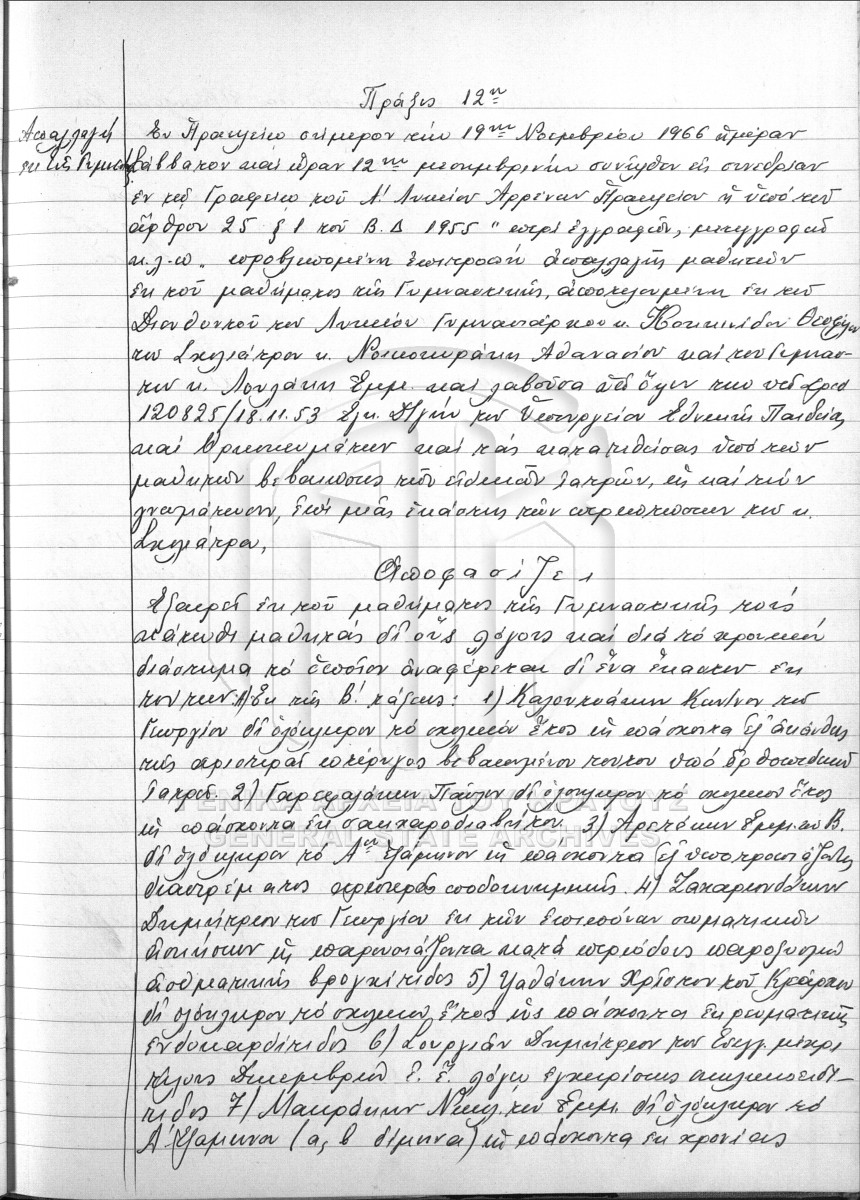 Πράξις 12η
Απαλλαγή
εκ της Γυμν/κής
Εν Ηρακλείω σήμερον την 19ην Νοεμβρίου 1966 ημέραν
Σάββατον και ώραν 12ην μεσημβρινήν συνήλθεν εις συνεδρίαν
εν τω Γραφείω του Α' Λυκείου Αρρένων Ηρακλείου η υπό του
άρθρου 25 § 1 του Β.Δ 1955 " περί εγγραφών, μετεγγραφών
κ.λ.π „ προβλεπομένη επιτροπή απαλλαγής μαθητών
εκ του μαθήματος της Γυμναστικής, αποτελουμένη εκ του
Διευθυντού του Λυκείου Γυμνασιάρχου κ. Κοκκινίδου Θεοφίλου
του Σχολιάτρου κ. Νοικοκυράκη Αθανασίου και του Γυμνασ-
του κ. Λουλάκη Εμμ. και λαβούσα υπ' όψιν την υπ' αριθ
120825/18.11.53 Εγκ. Δ/γήν του Υπουργείου Εθνικής Παιδείας
και Θρησκευμάτων και τας κατατεθείσας υπό των
μαθητών βεβαιώσεις των ειδικών ιατρών, ως και την
γνωμάτευσιν, επί μιάς εκάστης των περιπτώσεων του κ.
Σχολιάτρου,
Αποφασίζει
Εξαιρεί εκ του μαθήματος της Γυμναστικής τους
κάτωθι μαθητάς δι' ους λόγους και διά το χρονικόν
διάστημα το οποίον αναφέρεται δι' ένα έκαστον εκ
τούτων: Α) Εκ της Β' τάξεως: 1) Καλουτσάκην Κων/νον του
Γεωργίου δι' ολόκληρον το σχολικόν έτος ως πάσχοντα εξ ακάνθης
της αριστεράς πτέρνης βεβαιωμένου τούτου υπό ορθοπεδικού
Ιατρού. 2) Γαρεφαλάκην Παύλον δι' ολόκληρον το σχολικόν έτος
ως πάσχοντα εκ σακχαροδιαβήτου 3) Αρετάκην Εμμ. του Β.
δι' ολόκληρον το Αον εξάμηνον ως πάσχοντα εξ υποτροπιάζοντος
διαστρέμματος αριστεράς ποδοκνημικής. 4) Ζαχαριουδάκην
Δημήτριον του Γεωργίου εκ των επιπόνων σωματικών
ασκήσεων ως παρουσιάζοντα κατά περιόδους παροξυσμού
ασθματικής βρογχίτιδος 5) Υαλάκην Χρήστον του Κλεάρχου
δι' ολόκληρον το σχολικόν έτος ως πάσχοντα εκ ρευματικής
ενδοκαρδίτιδος 6) Σουργιάν Δημήτριον του Ευαγγ. μέχρι
τέλους Δεκεμβρίου ε. έ. λόγω εγχειρίσεως σκωληκοειδί-
τιδος 7) Μακράκην Νικολ. του Εμμ. δι' ολόκληρον το
Α' Εξάμηνον (α, β δίμηνα) ως πάσχοντα εκ χρονίας
ΓΕΝΙΚΑ ΑΡΧΕΙΑ ΤΟΥ ΚΡΑΤΟΥΣ
GENERAL STATE ARCHIVES